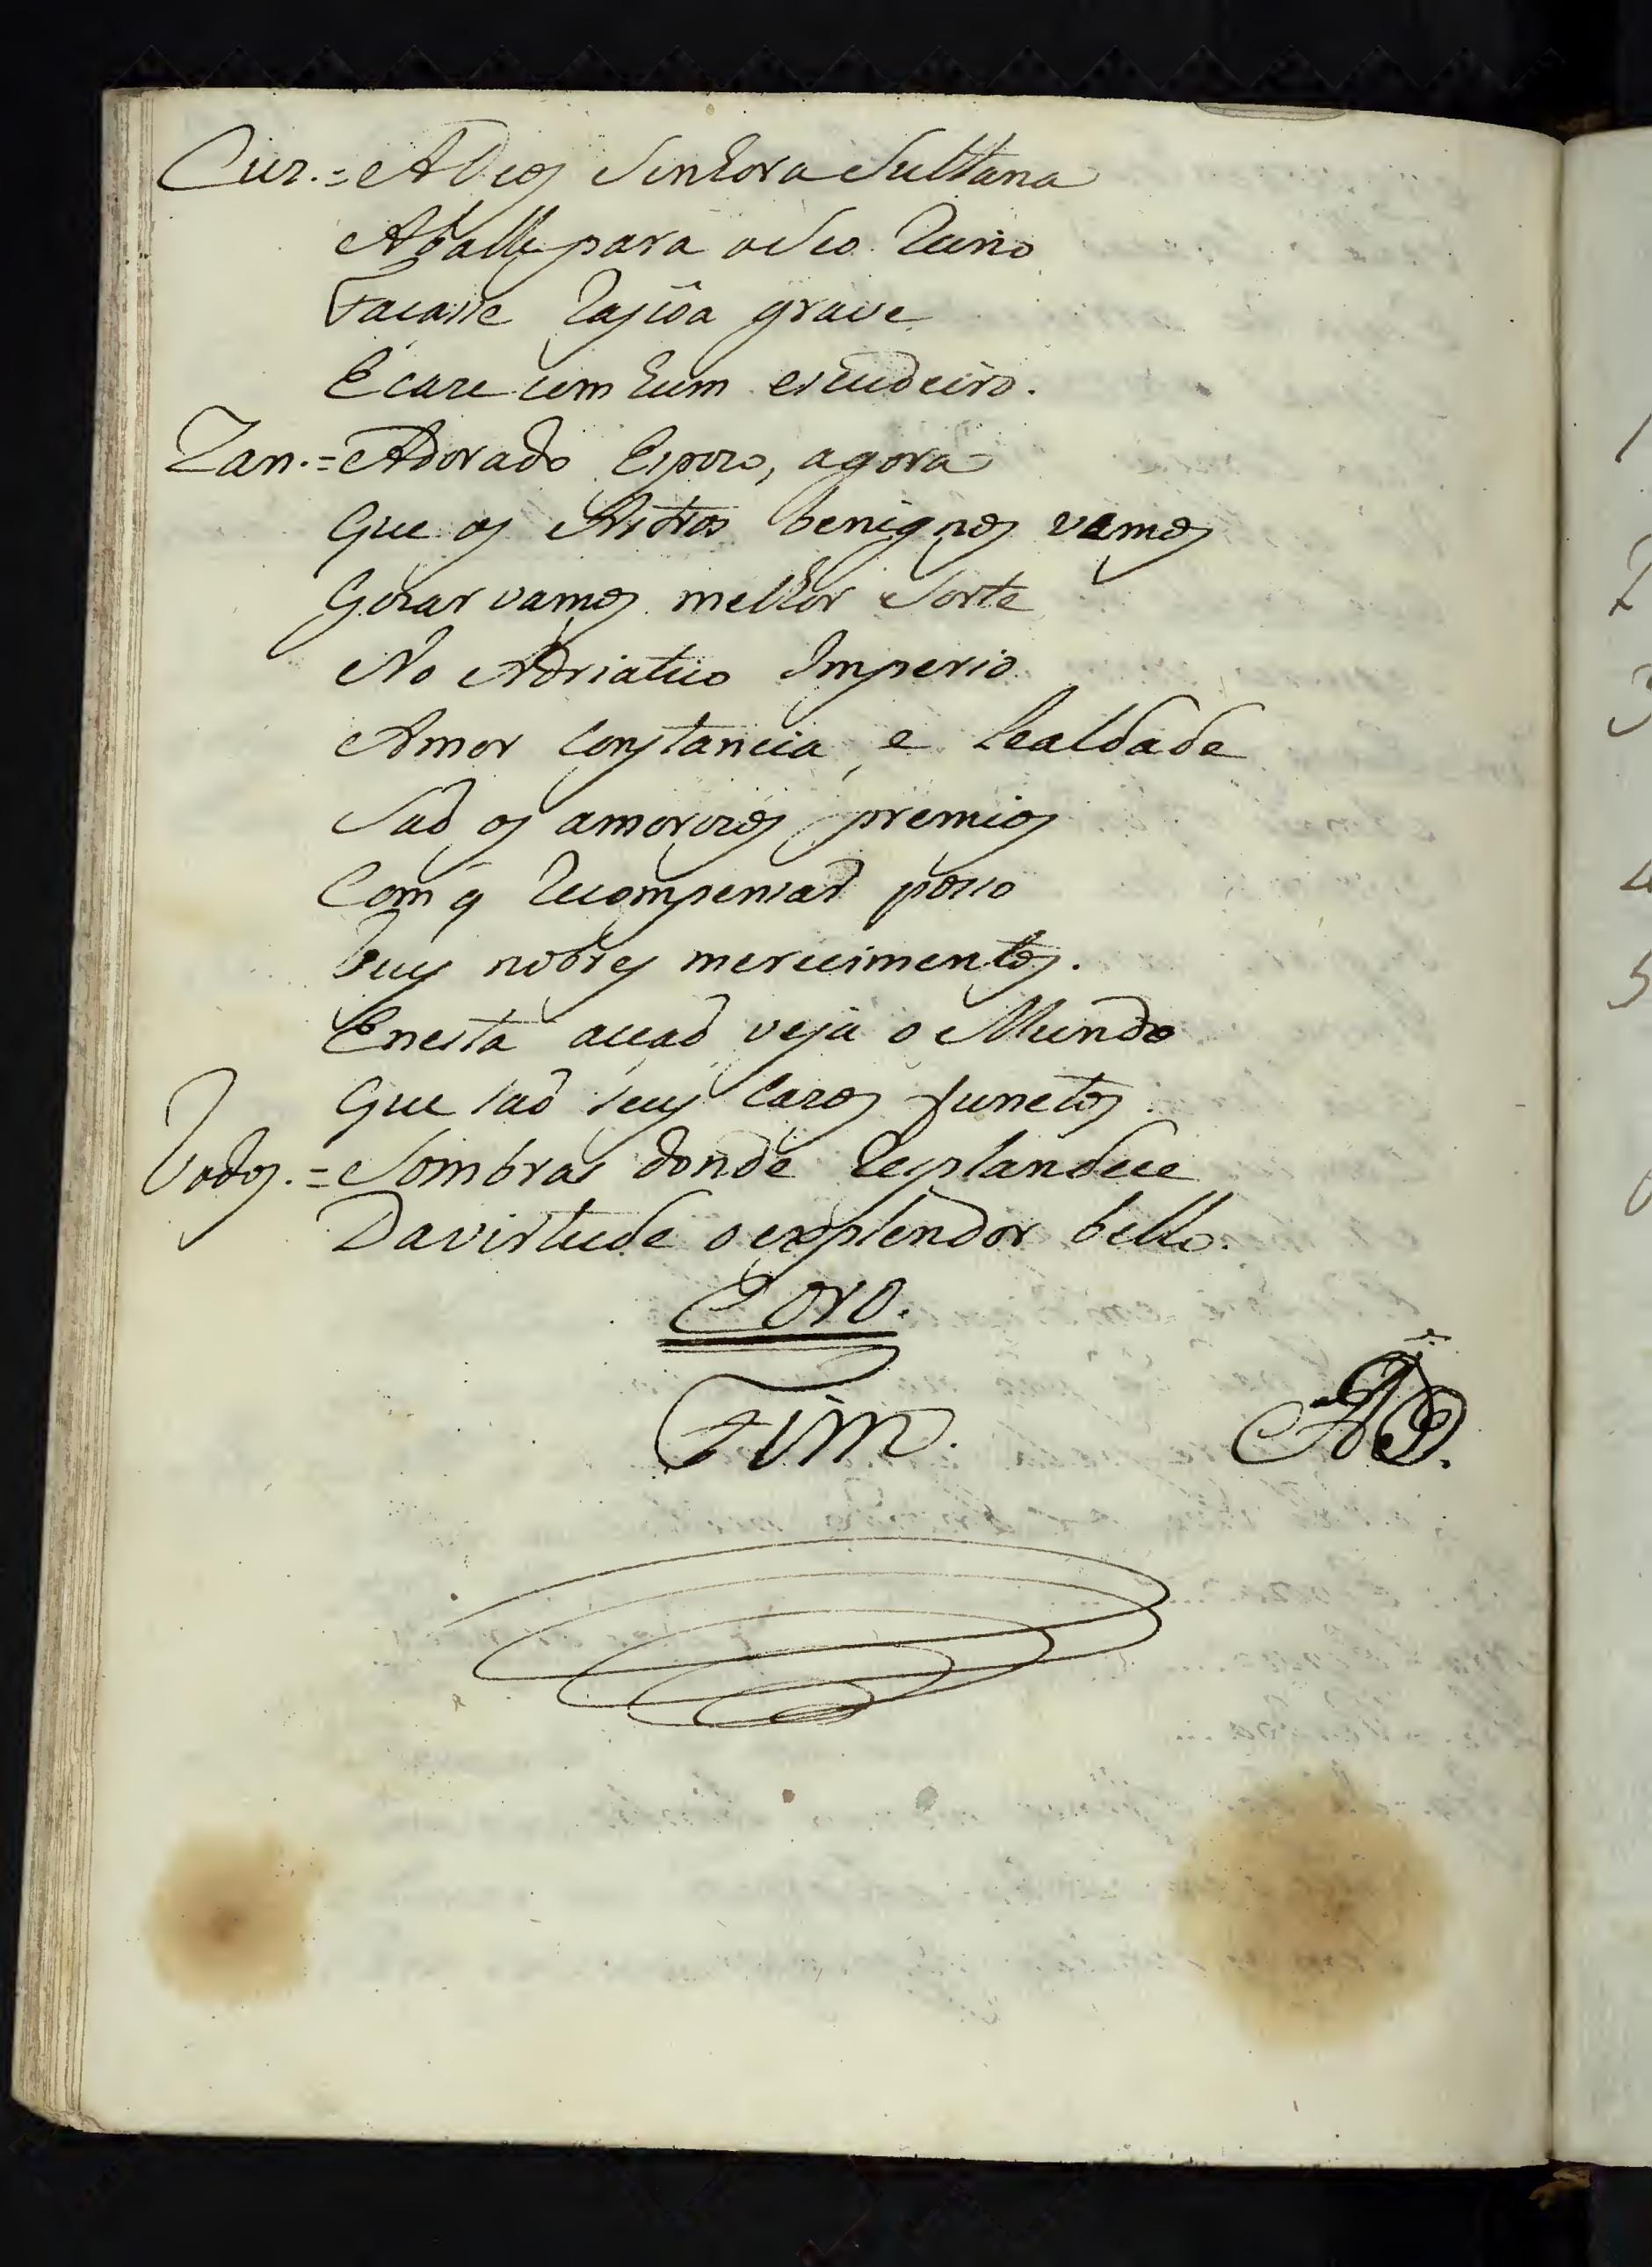 Cur. = A Deos Senhora Sultana
Aballe para o Seo Reino
Facasse Rapôa grave
E case com hum escudeiro.
Zan. = Adorado Espozo, agora
Que os Astros benignos vemos
Gozar vamos melhor Sorte
No Adriatico Imperio
Amor Constancia, e Lealdade
Saõ os amorozos premios
Com q̃ Recompensar posso
Teus nobres merecimentos.
E nesta acçaõ veja o Mundo
Que saõ seus Lazos funestos
Todos. = Sombras donde Resplandece
Da virtude o explendor bello.
Coro.
Fim.
1
2
3
4
5